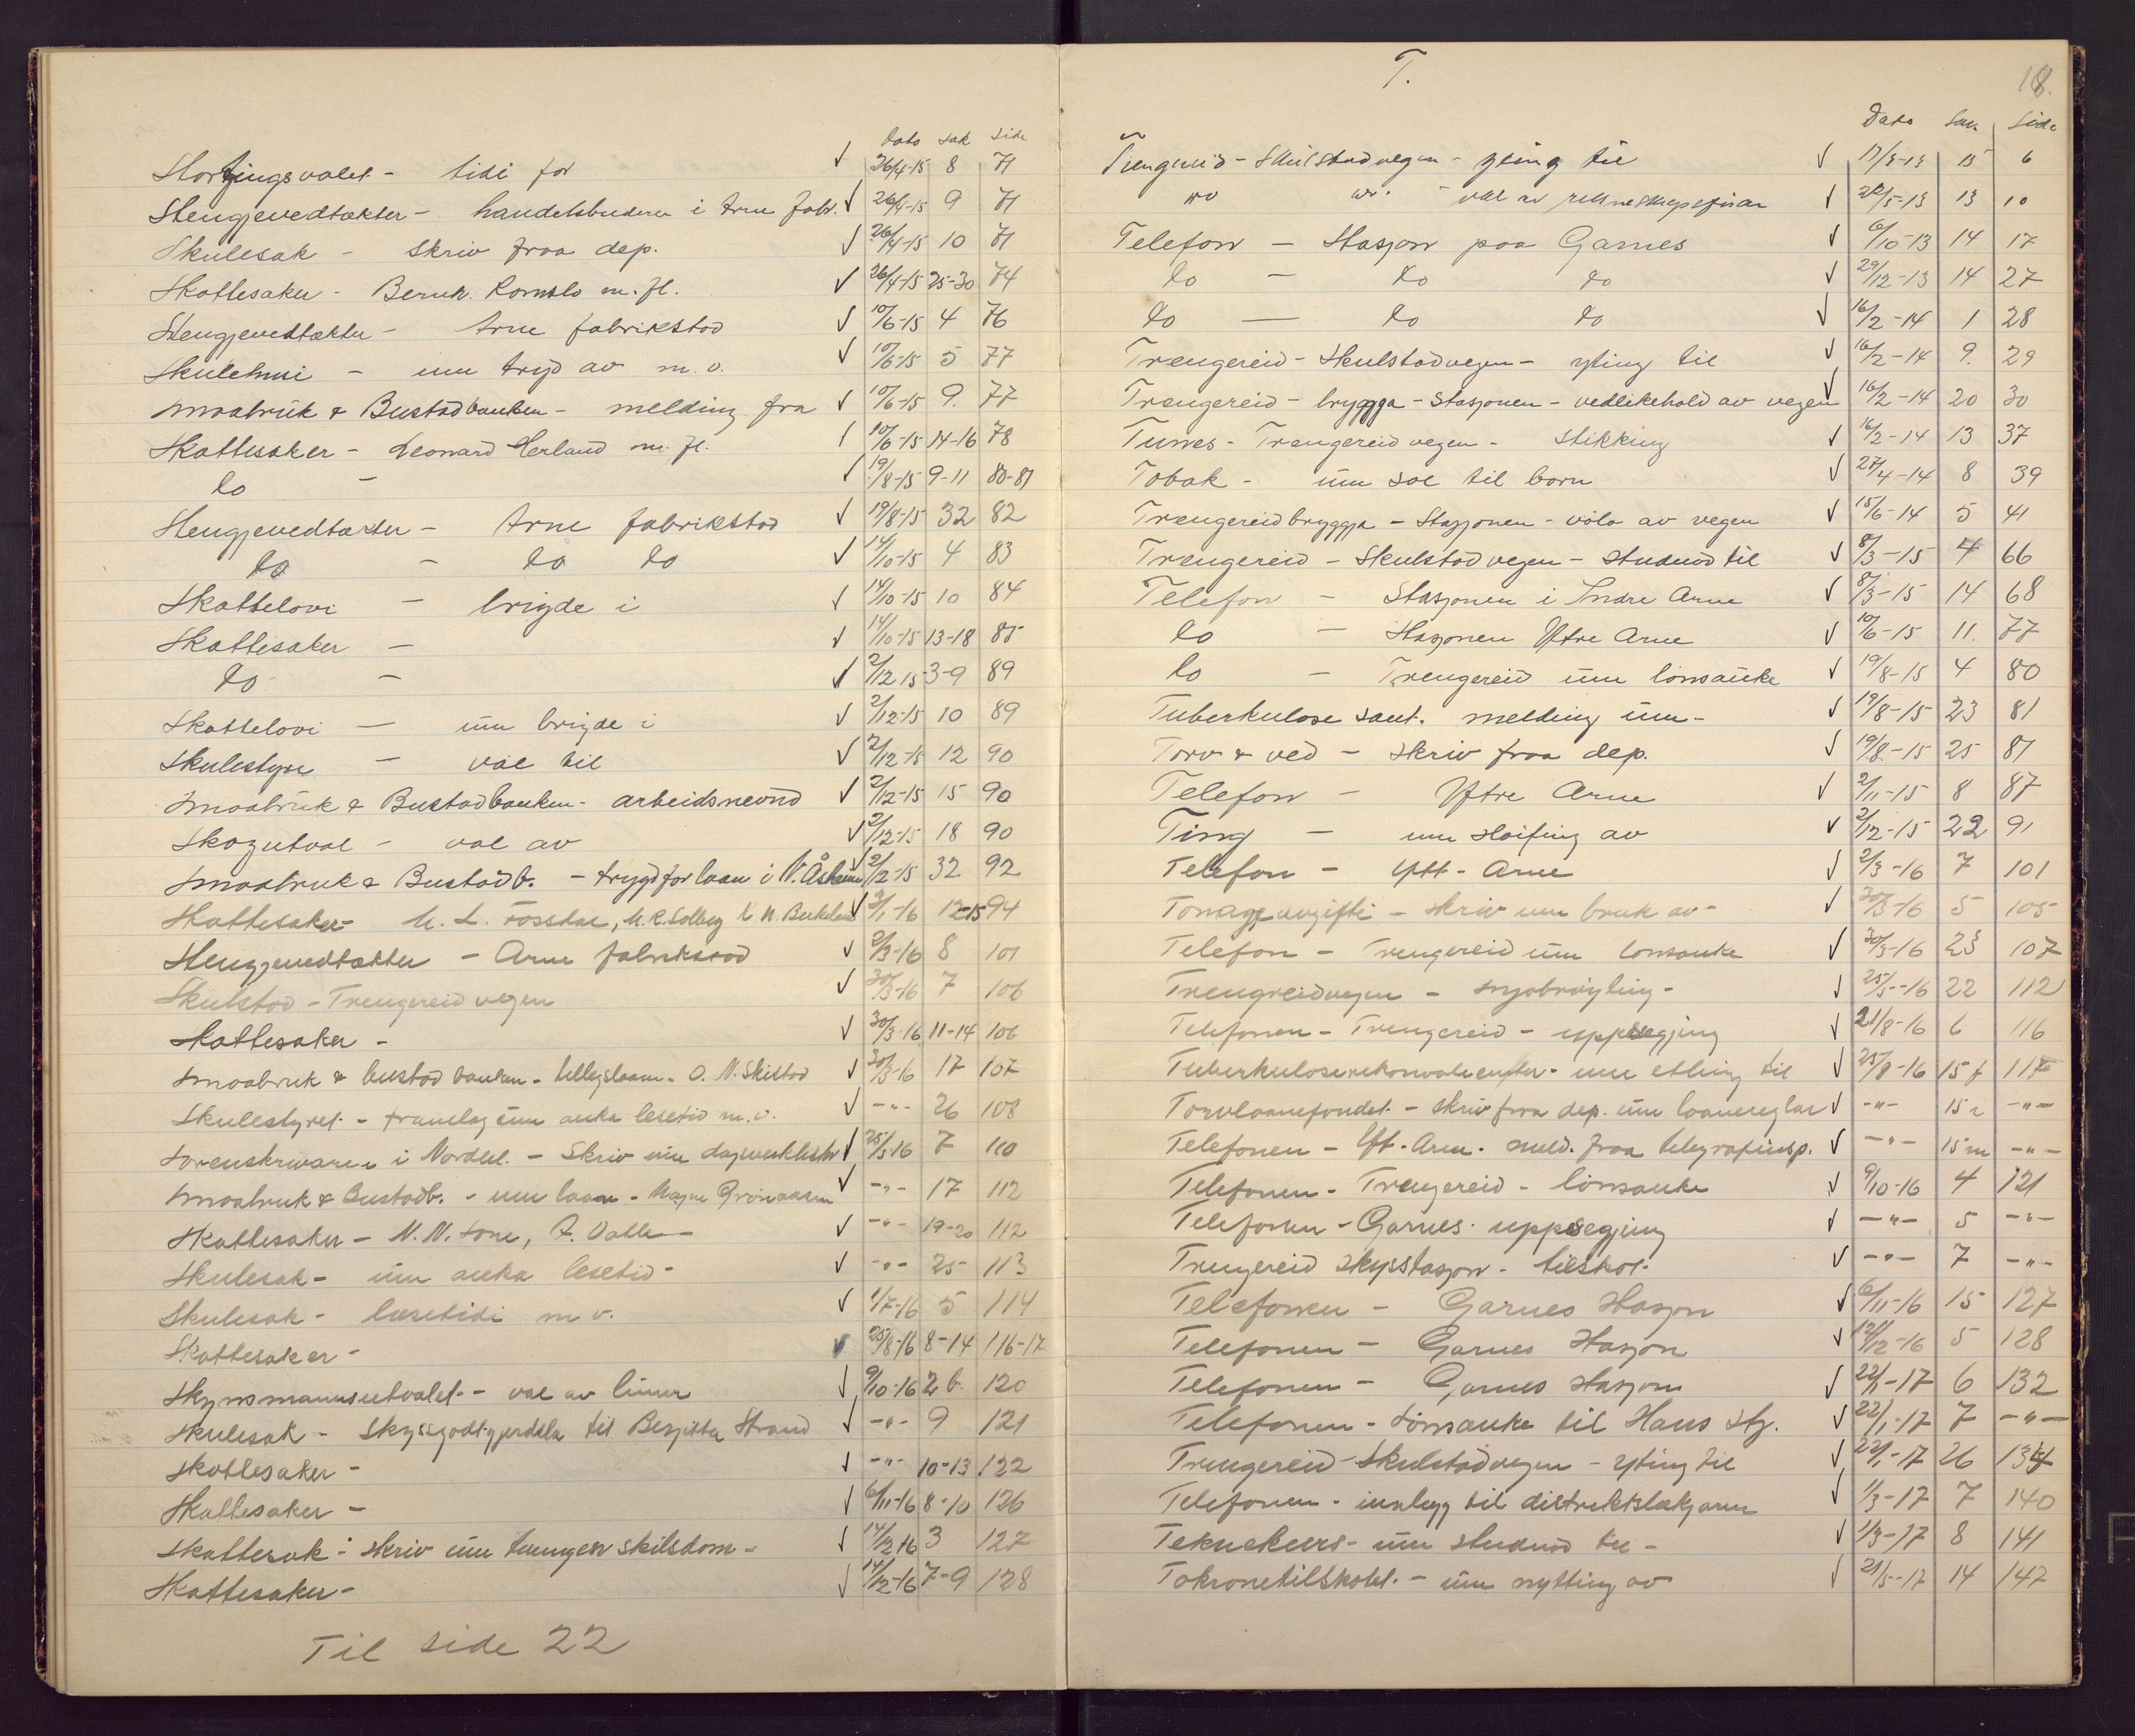 Dato sak side
Stortingsvalet - tidi for √ 26/4-15 8 71
Stengjevedtækter - handelsbuderne i Arne fabr. √ 26/4-15 9 71
Skulesak - skriv fraa dep. √ 26/4-15 10 71
Skattesaker - Bernh. Romslo m. fl. √ 26/4-15 25-30 74
Stengjevedtækter - Arne fabrikstad √ 10/6-15 4 76
Skulehus - um tryd av m. v. √ 10/6-15 5 77
Smaabruk & Bustadbanken - melding fra √ 10/6-15 9 77
Skattesaker - Leonard Herland m. fl. √ 10/6-15 14-16 78
do - √ 19/8-15 9-11 80-81
Stengjevedtækter - Arne fabrikstad √ 19/8-15 32 82
do - do do √ 14/10-15 4 83
Skattelovi - brigde i √ 14/10-15 10 84
Skattesaker - √ 14/10-15 13-18 85
do - √ 2/12 15 3-9 89
Skattelovi - um brigde i √ 2/12-15 10 89
Skulestyre - val til √ 2/12-15 12 90
Smaabruk & Bustadbanken - arbeidsnevnd √ 2/12-15 15 90
Skogutval - val av √ 2/12-15 18 90
Smaabruk & Bustadb. - trygd for laan i N. Åsheim √ 2/12-15 32 92
Skattesaker - M. L. Fosskar, M. R. Solberg & N. Birkeland √ 3/1-16 12-15 94
Stengjevedtækter - Arne fabrikstad √ 2/3-16 8 101
Skulstad - Trengereid vegen √ 30/3-16 7 106
Skattesaker - √ 30/3-16 11-14 106
Smaabruk & bustadbanken - tilleggslaan - O. N. Skistad √ 30/3-16 17 107
Skulestyret - framlag um auka lesetid m. v. √ -"- 26 108
Sorenskrivaren i Nordhl. - Skriv um dagsverklistor √ 25/5 16 7 110
Smaabruk & Bustadb. - um laan - Magne Grønaasen √ -"- 17 112
Skattesaker - N. N. Tone, A. Dalle - √ -"- 19-20 112
Skulesak - um auka lesetid - √ -"- 25 113
Skulesak - lesetidi m v. √ 1/7-16 5 114
Skattesaker - √ 25/8-16 8-14 116-17
Skynsmannsutvalet - val av limer √ 9/10-16 2 b. 120
Skulesak - Skyssgodtgjerdsla til Bergitta Strand √ -"- 9 121
Skattesaker - √ -"- 10-13 122
Skattesaker - √ 6/11-16 8-10 126
Skattesak - skriv um tvungen skilsdom - √ 14/12 16 3 127
Skattesaker - √ 14/12-16 7-9 128
Til side 22
T.
18.
Dato Sak. Side
Trengereid - Skulstadvegen - yting til √ 17/3-13 15 6
do do - val av rekneskapsførar √ 22/5-13 13 10
Telefon - Stasjon paa Garnes √ 6/10-13 14 17
do - do do √ 29/12-13 14 27
do - do do √ 16/2-14 1 28
Trengereid - Skulstadvegen - yting til √ 16/2-14 9. 29
Trengereid - bryggja - Stasjonen - vedlikehald av vegen √ 16/2-14 20 30
Tunes - Trengereid vegen - stikking √ 16/2-14 13 37
Tobak - um sal til born √ 27/4-14 8 39
Trengereidbryggja - Stasjonen - vøla av vegen √ 15/6-14 5 41
Trengereid - Skulstad vegen - studnad til √ 8/3-15 4 66
Telefon - Stasjonen i Indre Arne √ 8/3-15 14 68
do - Stasjonen Ytre Arne √ 10/6-15 11. 77
do - Trengereid um lønsauke √ 19/8-15 4 80
Tuberkulose saut. melding um - √ 19/8-15 23 81
Torv & ved - skriv fraa dep. √ 19/8-15 25 81
Telefon - Yttre Arne √ 2/11-15 8 87
Ting - um skifting av √ 2/12-15 22 91
Telefon - Ytt - Arne √ 2/3-16 7 101
Tonnageavgifti - skriv um bruk av - √ 30/3-16 5 105
Telefon - Trengereid um lønsauke √ 30/3-16 23 107
Trengreidvegen - snjobrøyting - √ 25/5-16 22 112
Telefonen - Trengereid - uppsegjing √ 21/8-16 6 116
Tuberkuloserekonvalecenter - um etling til √ 25/8-16 15 f 117
Torvlaanefondet - skriv fraa dep. um laanereglar √ -"- 15 r -"-
Telefonen - Ytt. Arne - meld. fraa telegrafinsp. √ -"- 15 m -"-
Telefonen - Trengereid - lønsauke √ 9/10-16 4 121
Telefonen - Garnes - uppsegjing √ -"- 5 -"-
Trengereid skysstasjon - tilskot - √ -"- 7 -"-
Telefonen - Garnes Stasjon √ 6/11-16 15 127
Telefonen - Garnes Stasjon √ 14/12-16 5 128
Telefonen - Garnes stasjon √ 22/1-17 6 132
Telefonen - Lønsauke til Haus Stj. √ 22/1-17 7 -"-
Trengereid - Skulstadvegen - yting til √ 22/1-17 26 134
Telefonen - innlegg til distriktslækjaren √ 1/3-17 7 140
Teknekurs - um studnad til - √ 1/3-17 8 141
Tokronetilskotet - um nytting av √ 21/5-17 14 147